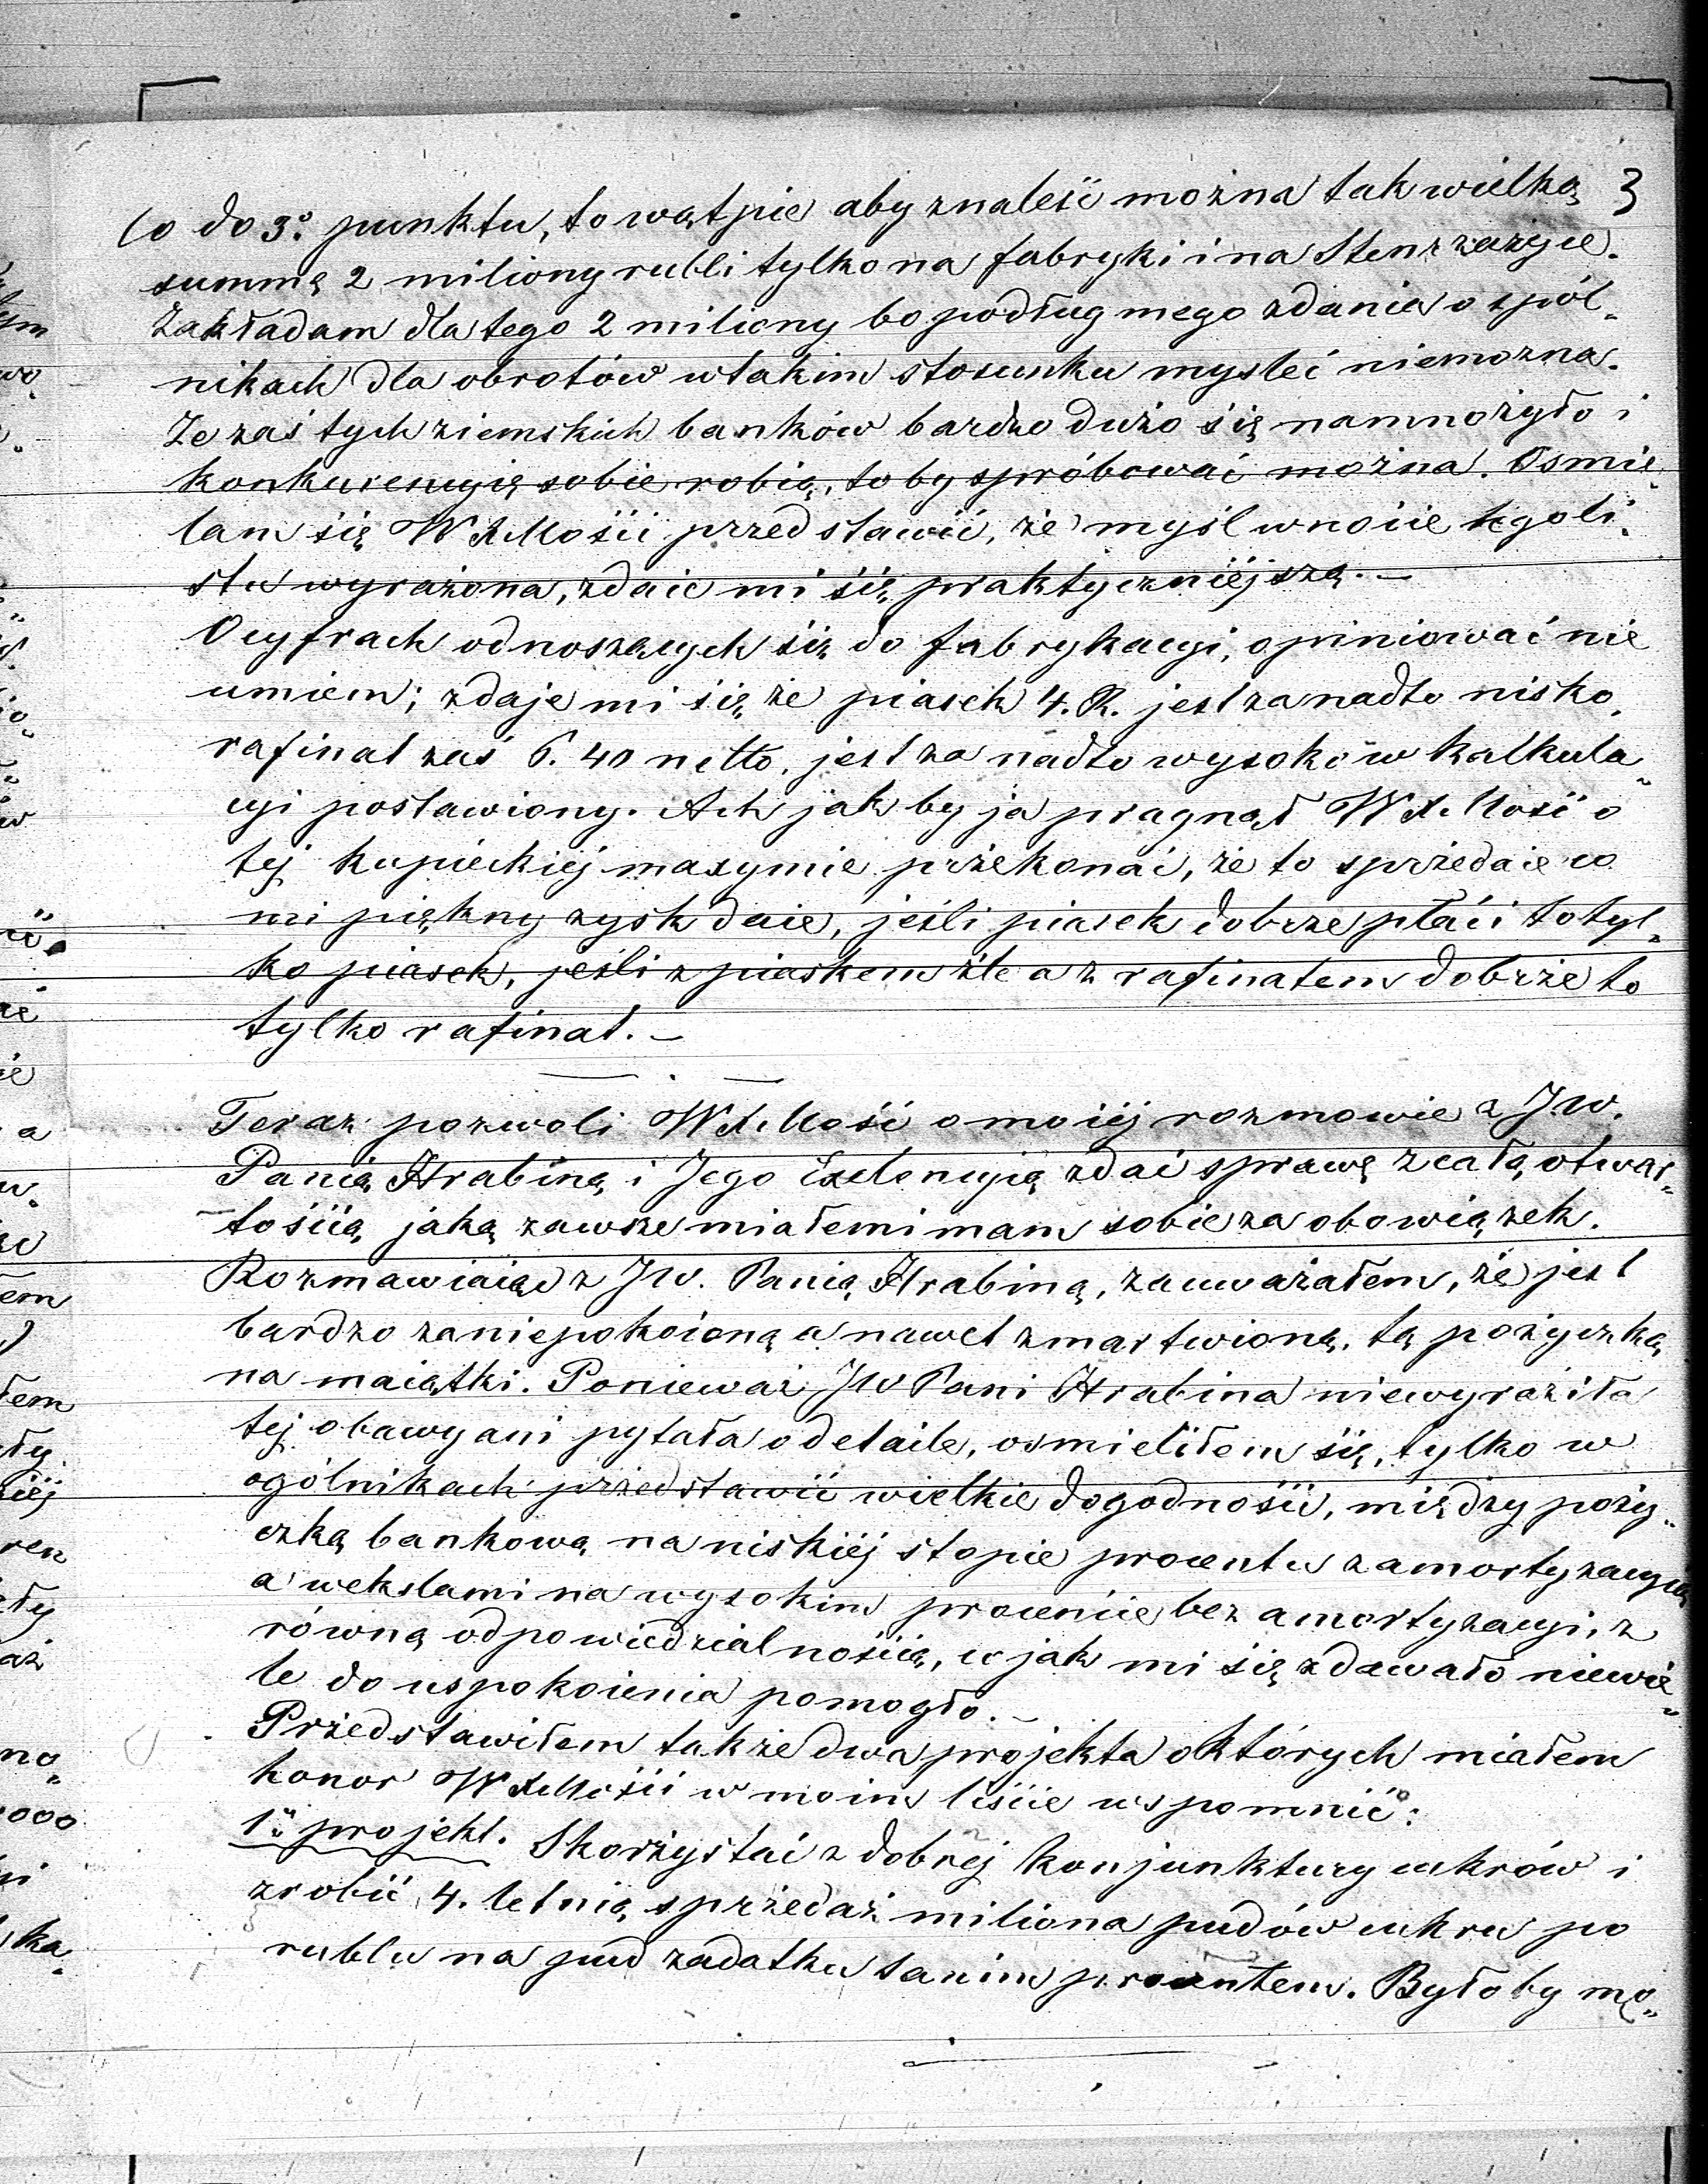 3
Co do 3º punktu, to wątpię aby znaleść można tak wielką
summę 2 miliony rubli tylko na fabryki i na Stenzzażyce.
Zakładam dla tego 2 miliony bo podług mego zdania o spól„
nikach dla obrotów w takim stosunku mysleć niemożna.
Że zaś tych ziemskich banków bardzo dużo się namnożyło i
konkurencyię sobie robią, to by spróbować można. Osmie„
lam się WJMości przedstawić, że myśl w nocie tego li„
stu wyrażona, zdaie mi się praktyczniéjszą. —
O cyfrach odnoszących się do fabrykacyi, opiniować nie
umiem; zdaje mi się że piasek 4. R. jest zanadto nisko,
rafinat zaś 6. 40 netto, jest za nadto wysoko w kalkula„
cyi postawiony. Ach jak by ja pragnął WJMość o
tej kupieckiéj maxymie przekonać, że to sprzedaie co
mi piękny zysk daie, jeśli piasek dobrze płaci to tyl„
ko piasek, jeśli z piaskem źle a z rafinatem dobrze to
tylko rafinat. —
Teraz pozwoli WJMość o moiéj rozmowie z JW.
Panią Hrabiną i Jego Exelencyją zdać sprawę z całą otwar„
tością, jaką zawsze miałem i mam sobie za obowiązek.
Rozmawiaiąc z JW. Panią Hrabiną, zauważałem, że jest
bardzo zaniepokoioną a nawet zmartwioną, tą pożyczką
na maiątki. Ponieważ JW Pani Hrabina niewyraziła
tej obawy ani pytała o detaile, osmieliłem się, tylko w
ogólnikach przedstawić wielkie dogodności, między poży„
czką bankową na niskiéj stopie procentu z amortyzacyią
a wekslami na wysokim procencie bez amortyzacyi, z
równą odpowiedzialnością, co jak mi się zdawało niewie„
le do uspokoienia pomogło. —
Przedstawiłem także dwa projekta o których miałem
honor WJMości w moim liście wspomnić:
1y projekt. Skorzystać z dobréj konjunktury cukrów i
zrobić 4. letnią sprzedaż miliona pudów cukru po
rublu na pud zadatku tanim procentem. Byłoby mo„